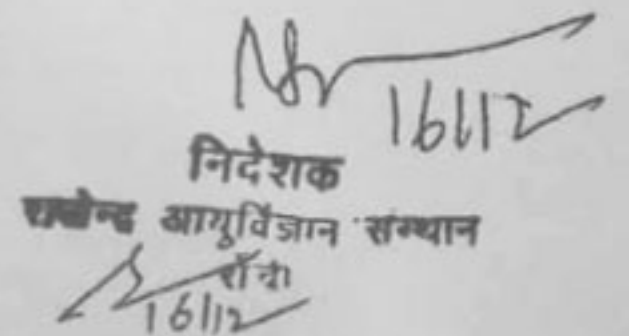 16/12
निदेशक
राजेन्द्र आयुर्विज्ञान संस्थान
राँची
16/12